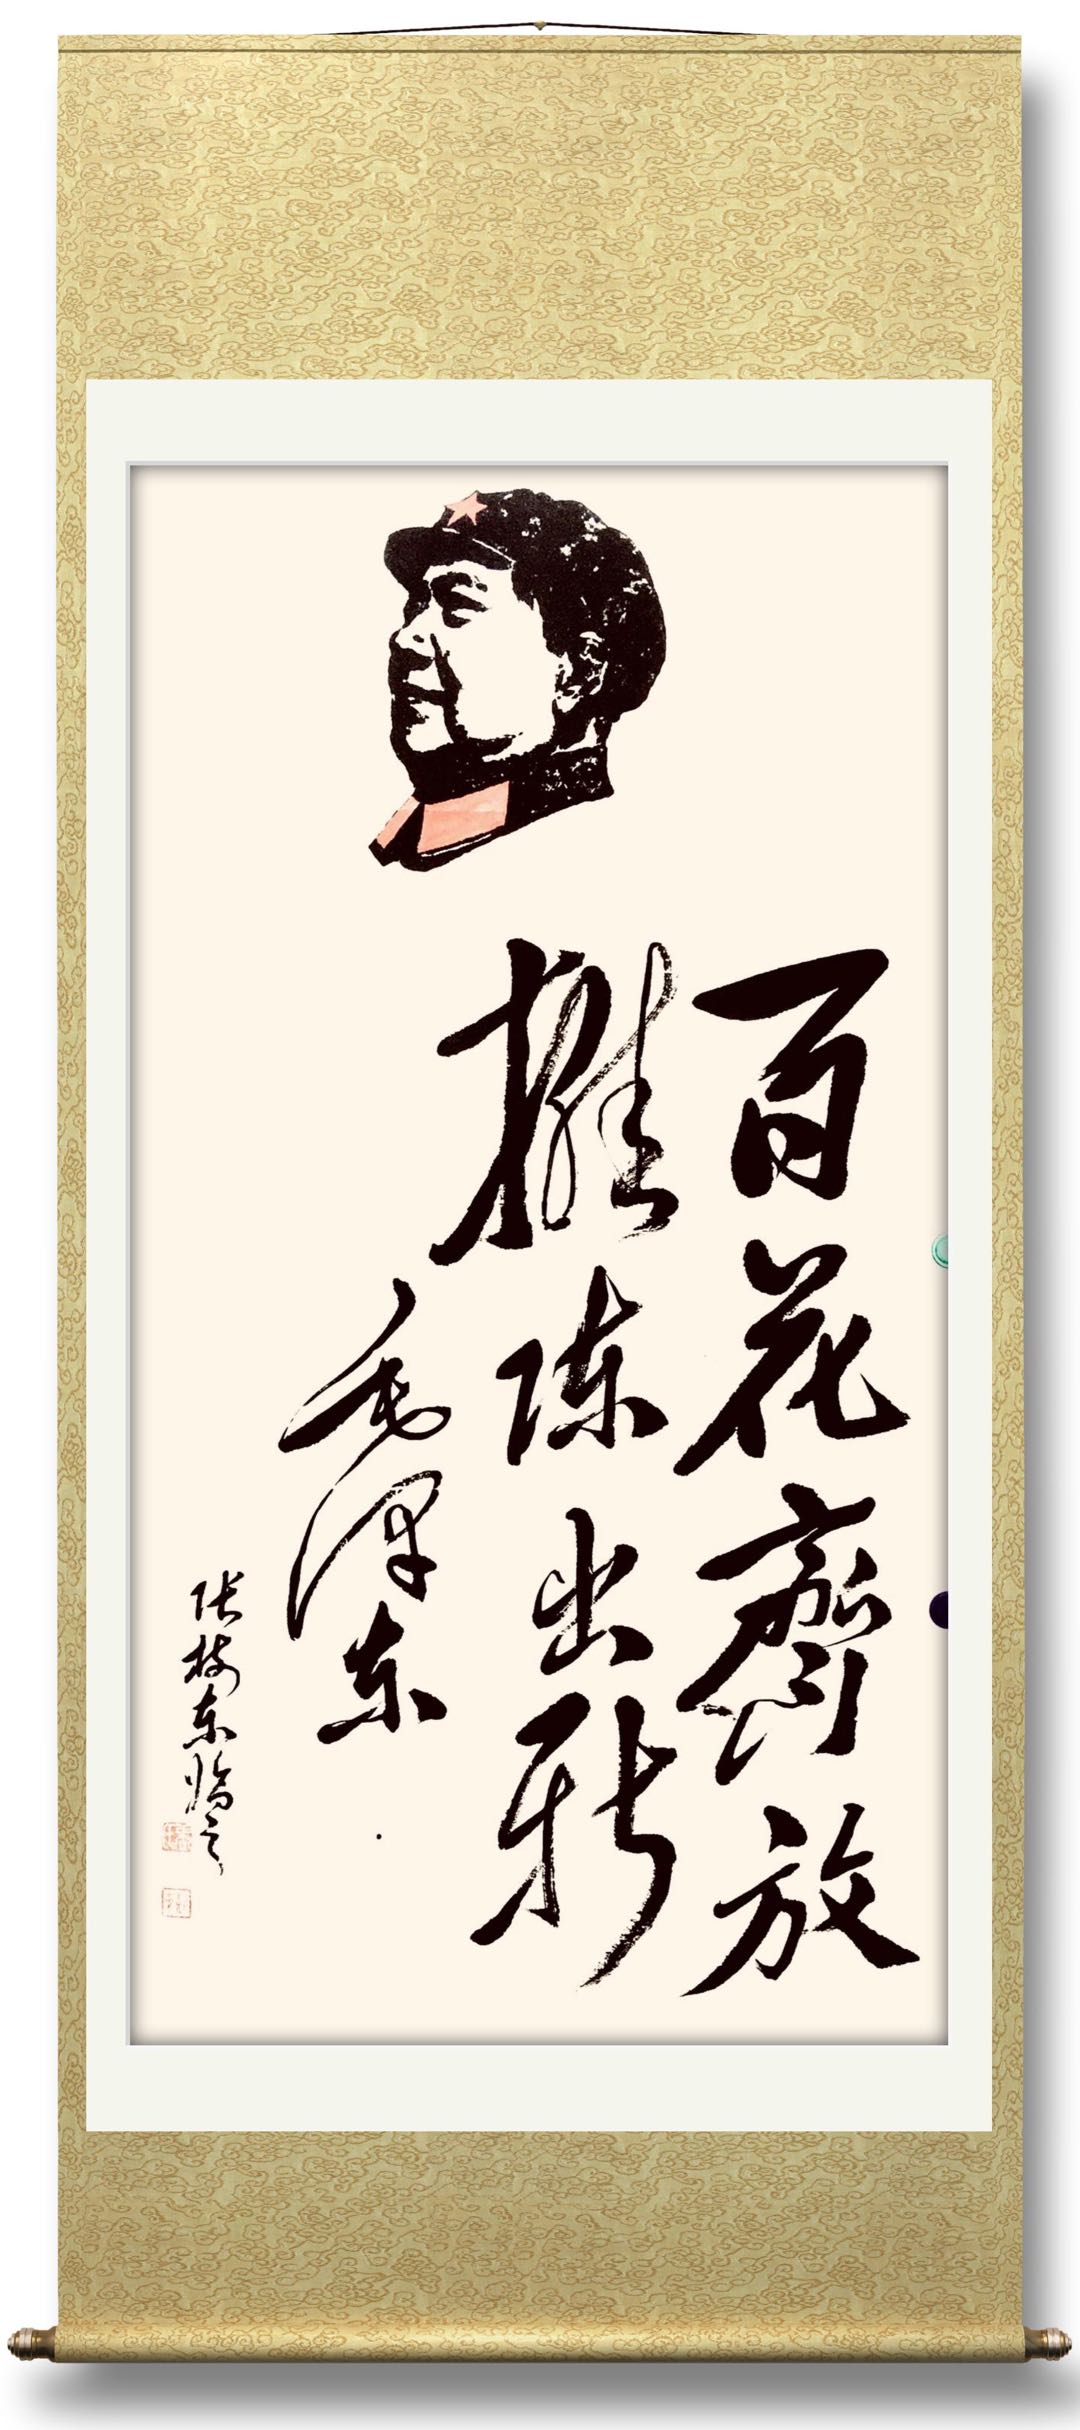 百花齊放
推陳出新
毛澤东
张树东临之